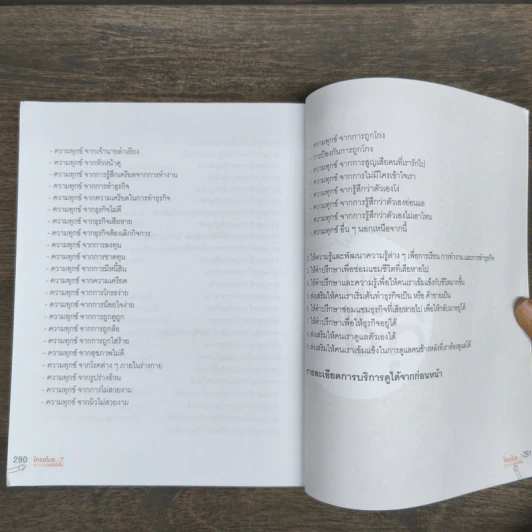 - ความทุกข์ จากเจ้านายลำเอียง
- ความทุกข์ จากหัวหน้าดุ
- ความทุกข์ จากการรู้สึกเครียดจากการทำงาน
- ความทุกข์ จากการทำธุรกิจ
- ความทุกข์ จากความเครียดในการทำธุรกิจ
- ความทุกข์ จากธุรกิจไม่ดี
- ความทุกข์ จากธุรกิจเสียหาย
- ความทุกข์ จากธุรกิจต้องเลิกกิจการ
- ความทุกข์ จากการลงทุน
- ความทุกข์ จากการขาดทุน
- ความทุกข์ จากการมีหนี้สิน
- ความทุกข์ จากความเครียด
- ความทุกข์ จากการโกรธง่าย
- ความทุกข์ จากการน้อยใจง่าย
- ความทุกข์ จากการถูกดูถูก
- ความทุกข์ จากการถูกล้อ
- ความทุกข์ จากการถูกใส่ร้าย
- ความทุกข์ จากสุขภาพไม่ดี
- ความทุกข์ จากโรคต่าง ๆ ภายในร่างกาย
- ความทุกข์ จากรูปร่างอ้วน
- ความทุกข์ จากการไม่สวยงาม
- ความทุกข์ จากผิวไม่สวยงาม
290
- ความทุกข์ จากการถูกโกง
- การป้องกันการถูกโกง
- ความทุกข์ จากการสูญเสียคนที่เรารักไป
- ความทุกข์ จากการไม่มีใครเข้าใจเรา
- ความทุกข์ จากรู้สึกว่าตัวเองโง่
- ความทุกข์ จากการรู้สึกว่าตัวเองอ่อนแอ
- ความทุกข์ จากการรู้สึกว่าตัวเองไม่เอาไหน
- ความทุกข์ อื่น ๆ นอกเหนือจากนี้
ให้ความรู้และพัฒนาความรู้ต่าง ๆ เพื่อการเรียน การทำงาน และการทำธุรกิจ
ให้คำปรึกษาเพื่อซ่อมแซมชีวิตที่เสียหายไป
ให้คำปรึกษาและความรู้เพื่อให้คนเราเข้มแข็งกับชีวิตมากขึ้น
ส่งเสริมให้คนเราเริ่มต้นทำธุรกิจเป็น หรือ ค้าขายเป็น
ให้คำปรึกษาซ่อมแซมธุรกิจที่เสียหายไป เพื่อให้กลับมาอยู่ได้
ให้คำปรึกษาเพื่อให้ธุรกิจอยู่ได้
ส่งเสริมให้คนเราดูแลตัวเองได้
ส่งเสริมให้คนเราเข้มแข็งในการดูแลคนข้างหลังที่เราต้องดูแลได้
รายละเอียดการบริการดูได้จากก่อนหน้า
291